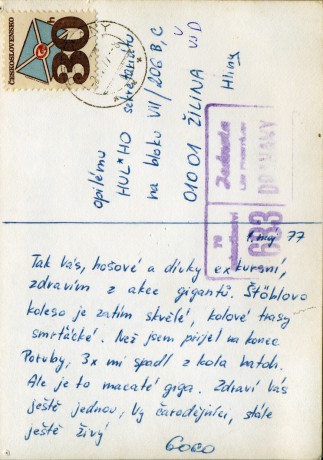 ČESKOSLOVENSKO
30h
opilému
HUL*HO sekretariátu
na bloku VII/206 B,C
010 01 ŽILINA VŠD
Hliny
Jednota
633
DOHŇANY
1. máj 77
Tak Vás, hošové a dívky exkursní,
zdravím z akce gigantů. Štöblovo
koleso je zatím skvělé, kolové trasy
smrťácké. Než jsem přijel na konec
Poruby, 3x mi spadl z kola batoh.
Ale je to macaté giga. Zdraví Vás
ještě jednou, Vy čarodějníci, stále
ještě živý
GOGO